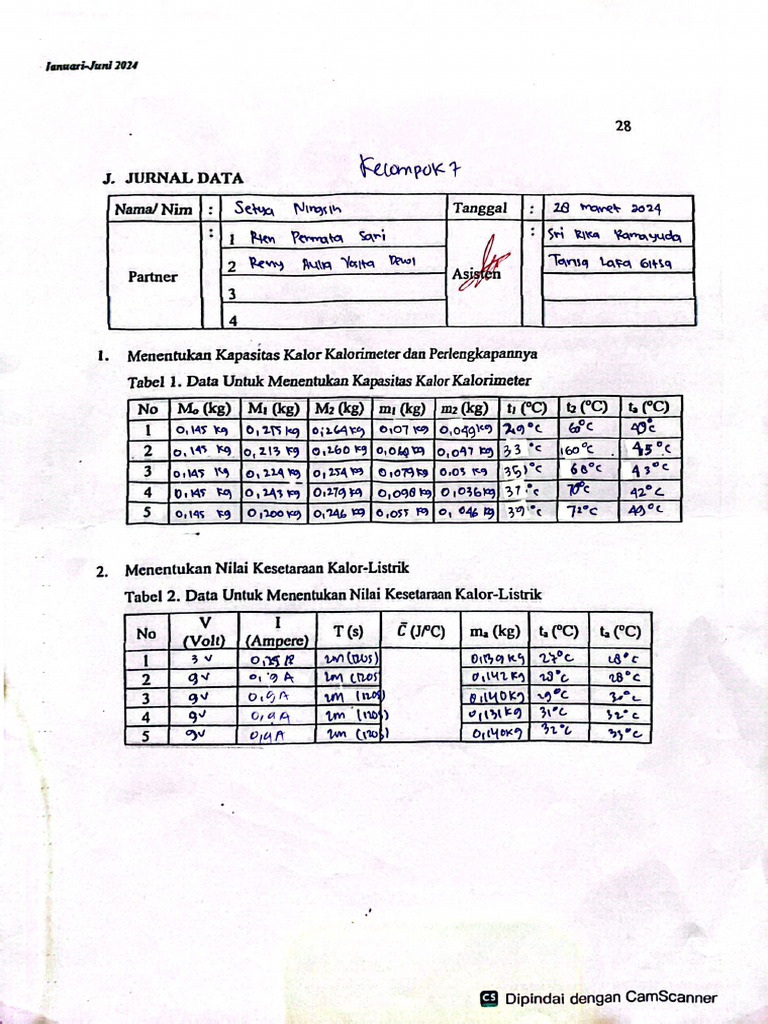 Januari-Juni 2024
28
Kelompok 7
J. JURNAL DATA
Nama/ Nim : Setya Ningsih Tanggal : 28 maret 2024
Partner : 1 Rien Permata Sari Asisten : Sri Rika Ramayuda
2 Remy Aulia Yosita Dewi Tansa Lara Gitsa
3
4
1. Menentukan Kapasitas Kalor Kalorimeter dan Perlengkapannya
Tabel 1. Data Untuk Menentukan Kapasitas Kalor Kalorimeter
No Mo (kg) M1 (kg) M2 (kg) m1 (kg) m2 (kg) t1 (°C) t2 (°C) ta (°C)
1 0,145 kg 0,215 kg 0,264 kg 0,07 kg 0,049 kg 29°C 60°C
2 0,145 kg 0,213 kg 0,260 kg 0,047 kg 33°C 160°C 45°C
3 0,145 kg 0,224 kg 0,254 kg 0,079 kg 0,03 kg 35°C 68°C 43°C
4 0,145 kg 0,243 kg 0,279 kg 0,098 kg 0,036 kg 37°C 70°C 42°C
5 0,145 kg 0,200 kg 0,246 kg 0,055 kg 0,046 kg 39°C 72°C 49°C
2. Menentukan Nilai Kesetaraan Kalor-Listrik
Tabel 2. Data Untuk Menentukan Nilai Kesetaraan Kalor-Listrik
No V (Volt) I (Ampere) T (s) C̅ (J/°C) ma (kg) ta (°C) ta (°C)
1 3 V 2m (120s) 0,139 kg 27°C 28°C
2 9V 2m (120s 0,142 kg 28°C
3 9V 2m (120s) 0,140 kg 29°C 30°C
4 9V 2m (120s) 0,131 kg 31°C 32°C
5 9V 0,4 A 2m (120s) 0,140 kg 32°C 33°C
CS Dipindai dengan CamScanner